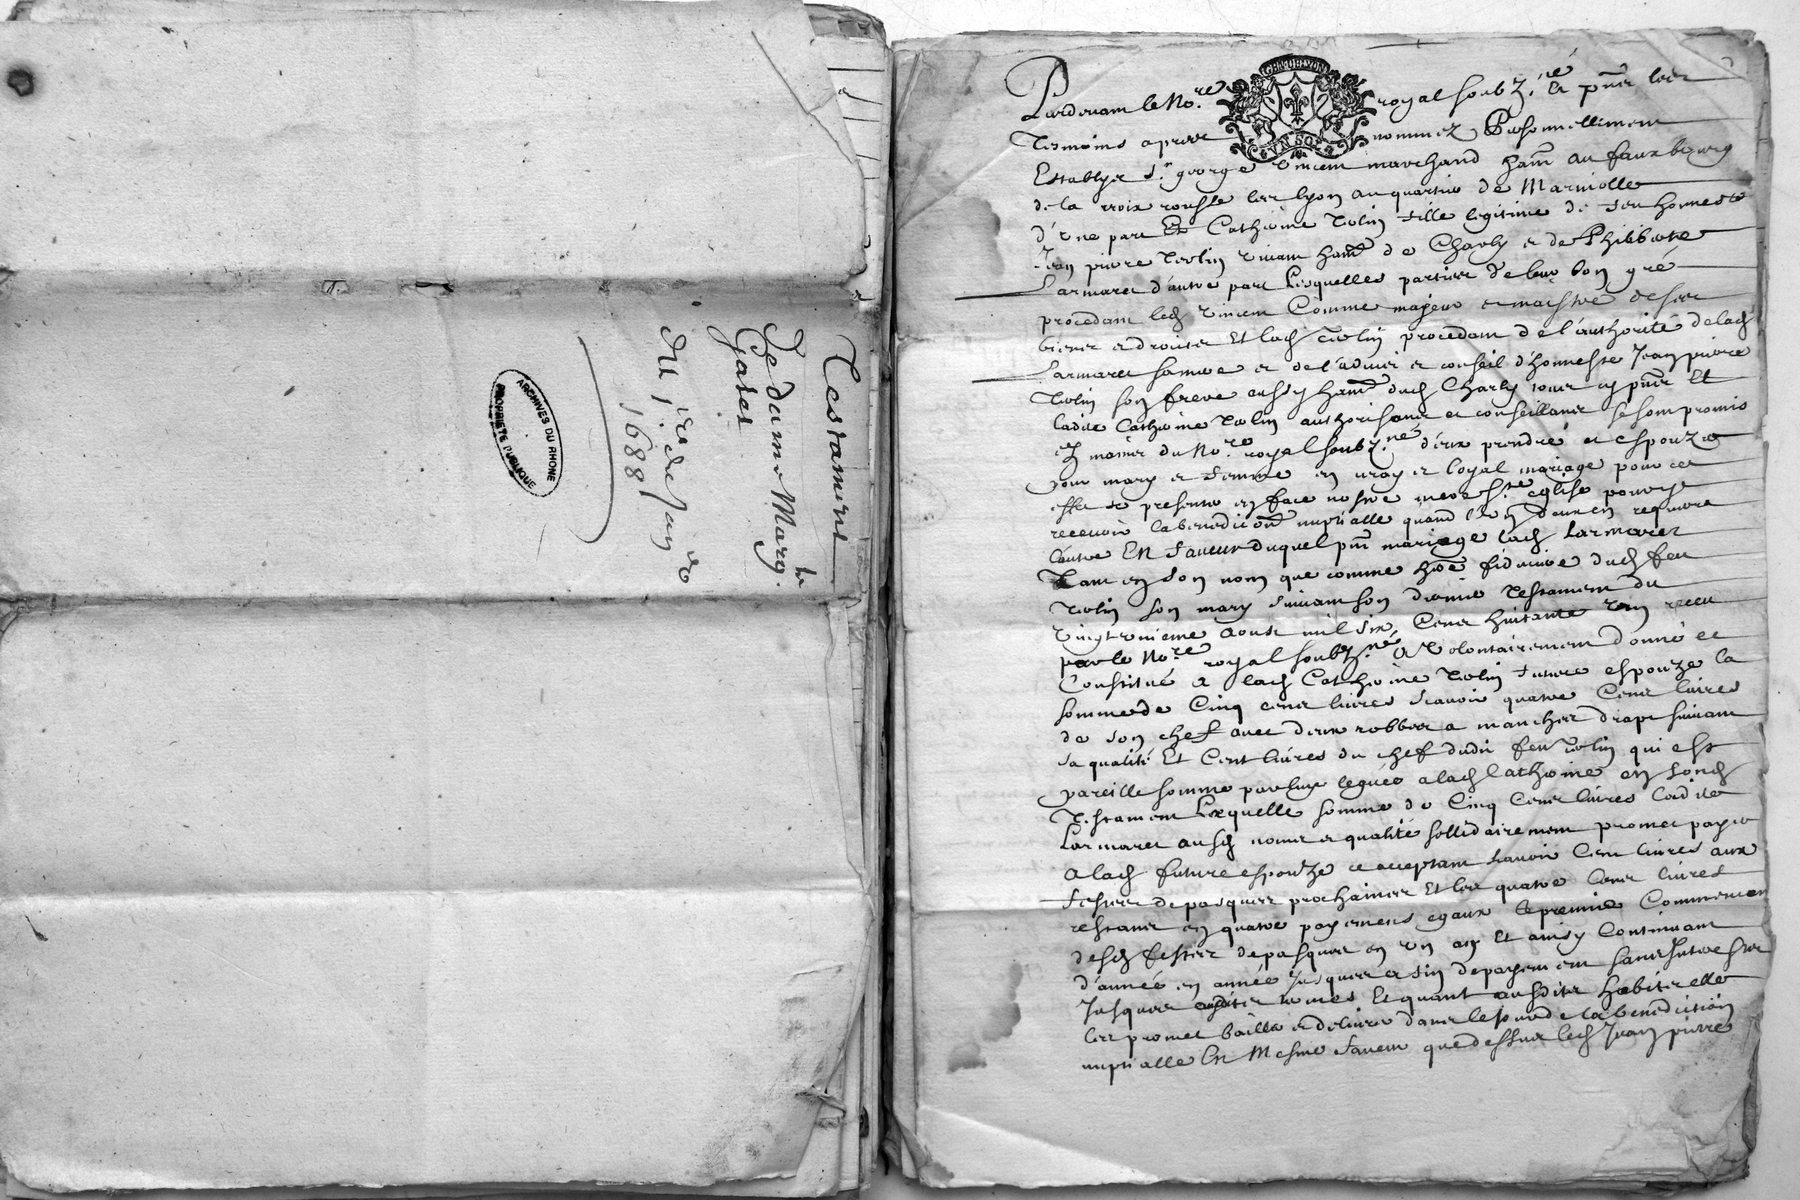 Testament
De dame Marg.te
Gaset
du 1.er de Janer
1688
ARCHIVES DU RHONE
PROPRIETE PUBLIQUE
GEN.DELYON
VN SOL
Pardevant le No.re royal soubz.né et pnts les
Tesmoins apres nommez Personnellement
Establys Sr george Vincent marchand hant au faux bourg
de la croix rousse les lyon au quartier de
d'Vne part Et Catherine Tolin fille legitime de feu honneste
Jean pierre Tolin vivant hant de Charly et de Philiberte
Larmaret d'autre part Lesquelles parties de leur bon gré
procedant led Vincent Comme majeur et maistre de ses
biens et droits Et lad Tolin procedant de l'authorité de lad
Larmaret sa mere et de l'advis et conseil d'honneste Jean pierre
Tolin son frere aussy hant dud Charly tous cy pnts Et
ladite Catherine Tolin authorisants et conseillants se sont promis
es mains du No.re royal soubz.né d'eux prendre et espouzer
pour mary et femme en vray et loyal mariage pour cet
effet se presenter en face nostre mere Ste eglise pour y
recevoir la benediction nuptialle quand l'un d'eux en requerra
l'autre En faveur duquel pnt mariage lad Larmaret
Tant en son nom que comme fiduciaire dud feu
Tolin son mary suivant son dernier Testament du
Vingt troisieme aoust mil six Cents huitante receu
par le No.re royal soubz.né a volontairement donné et
Constitué a lad Catherine Tolin future espouze la
somme de Cinq cents livres scavoir quatre Cents livres
de son chef avec deux robbes a manches drapt suivant
sa qualité Et Cent livres du chef dudit feu Tolin qui est
pareille somme par luy leguée a lad Catherine en sond
Testament Laquelle somme de Cinq Cents livres ladite
Larmaret ausd noms et qualité sollidairement promet payer
a lad future espouze ce acceptant scavoir Cent livres aux
festes de pasques prochaines Et les quatre Cents livres
restants en quatre payements egaux le premier Commencant
desd festes de pasques en Vn an Et ainsy Continuant
d'année en année Jusques a fin de payement sans Interest
Jusques ausdites termes Et quant ausdits habits elle
les promet bailler et delivrer dans le jour de la benediction
nuptialle En Mesme faveur que dessus led Jean pierre